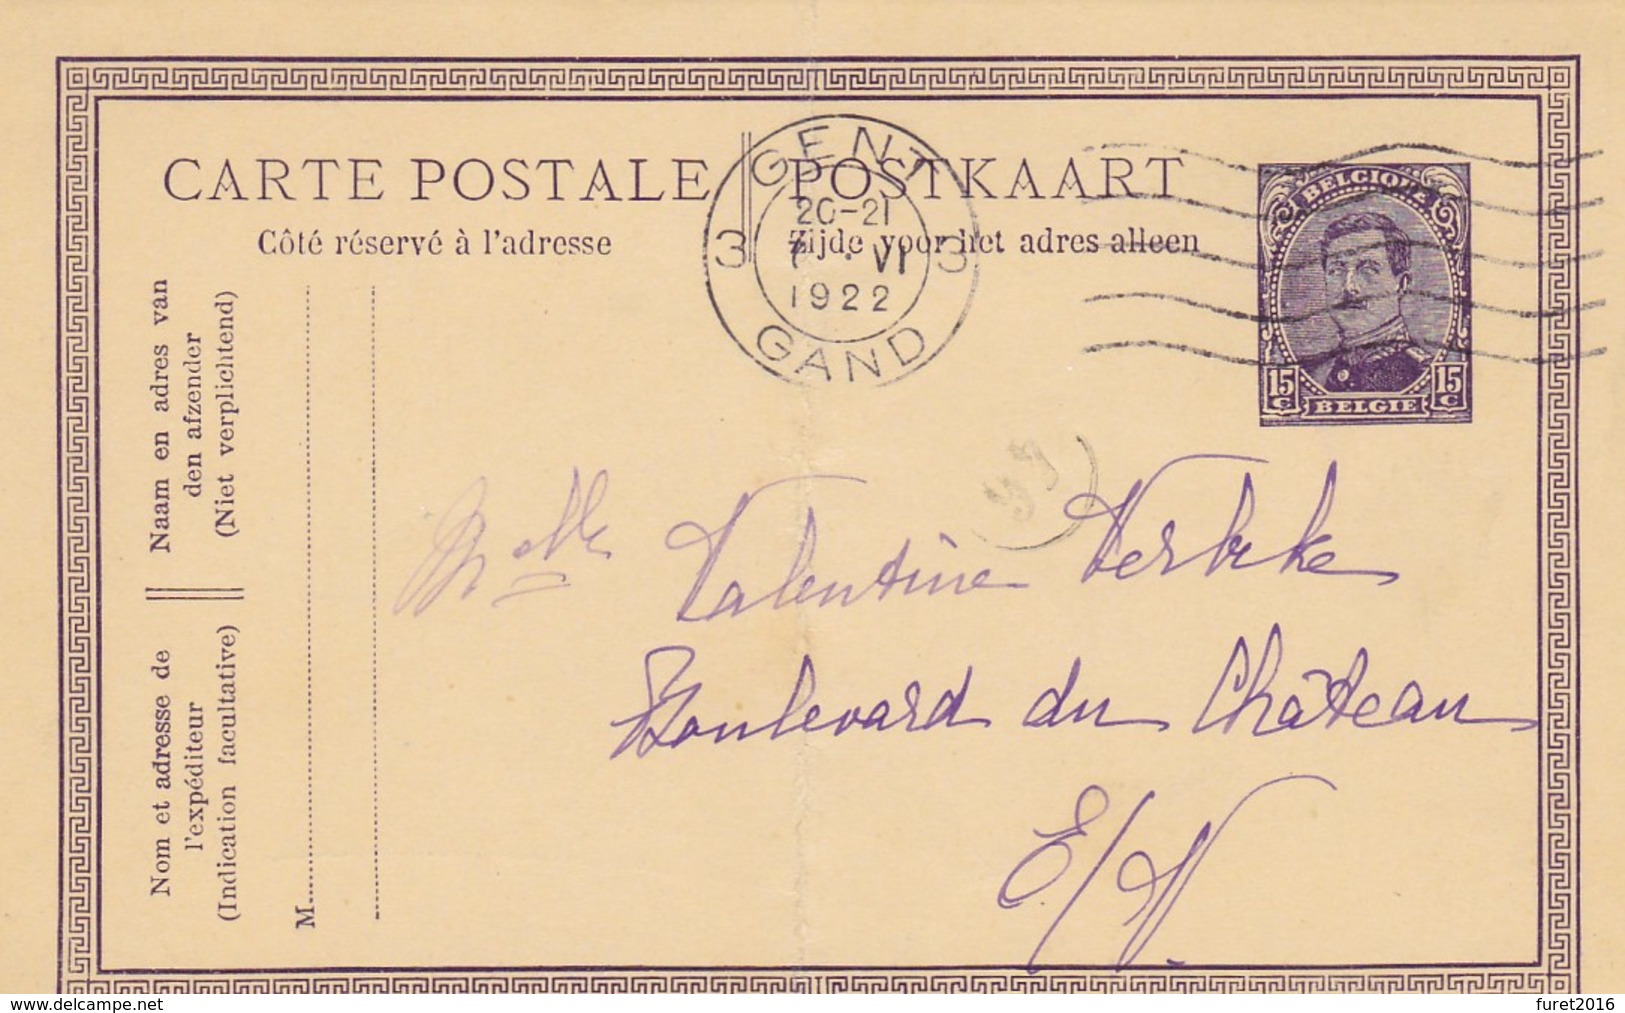 CARTE POSTALE
POSTKAART
Côté réservé à l'adresse
Zijde voor het adres alleen
GENT
20-21
3 7 · VI 3
1922
GAND
BELGIQUE
15 C
15 C
BELGIE
Naam en adres van
den afzender
(Niet verplichtend)
Nom et adresse de
l'expéditeur
(Indication facultative)
M
Melle Valentine Verbeke
Boulevard du Château
E/V.
www.delcampe.net
furet2016